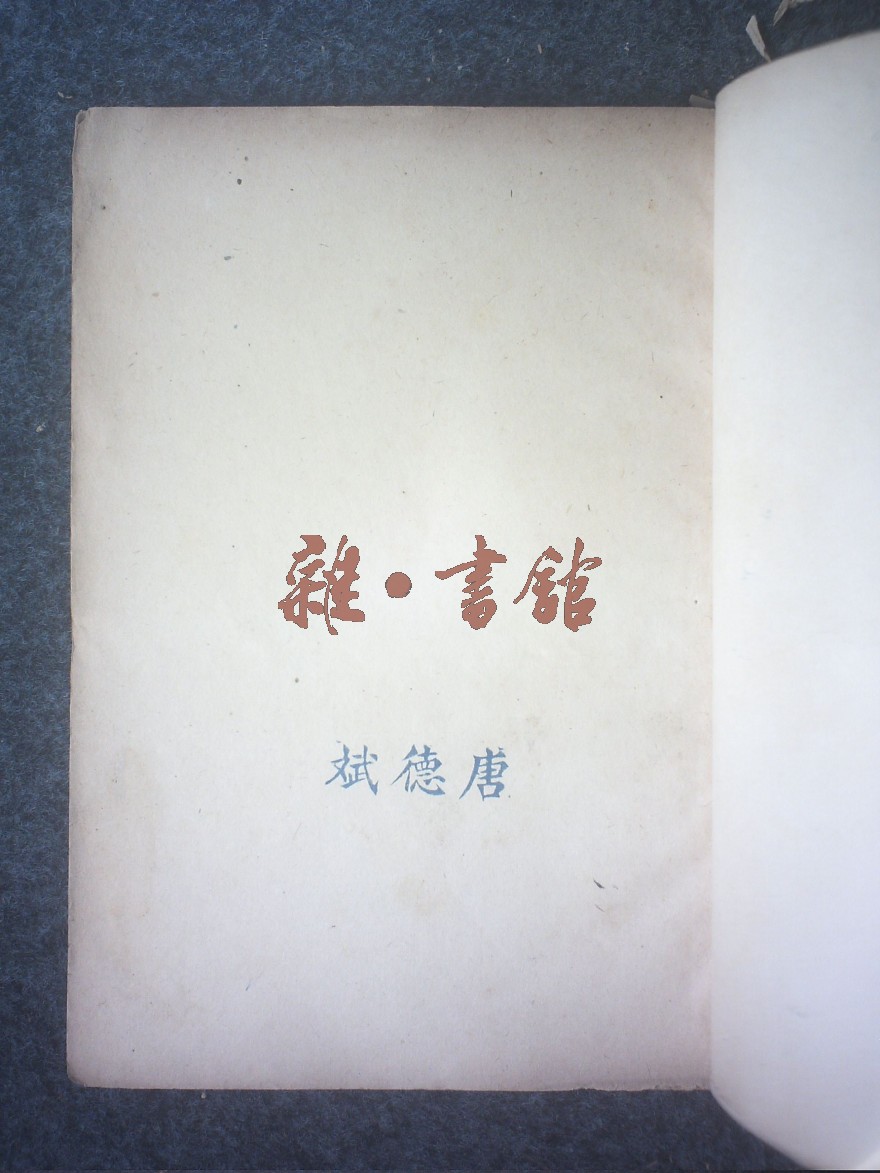 雜·書館
唐德斌